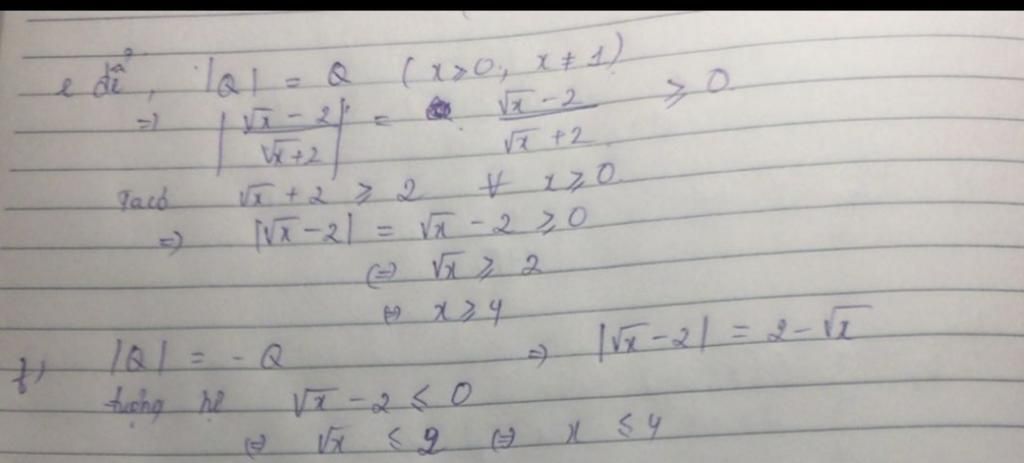 e để, |Q| = Q (x ≥ 0, x ≠ 1)
=> |(√x - 2)/(√x + 2)| = (√x - 2)/(√x + 2) ≥ 0
Ta có √x + 2 ≥ 2 ∀ x ≥ 0
=> |√x - 2| = √x - 2 ≥ 0
<=> √x ≥ 2
<=> x ≥ 4
f, |Q| = - Q => |√x - 2| = 2 - √x
tượng hự √x - 2 ≤ 0
<=> √x ≤ 2 <=> x ≤ 4